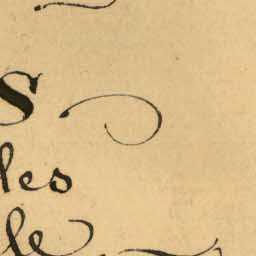 s
les
le